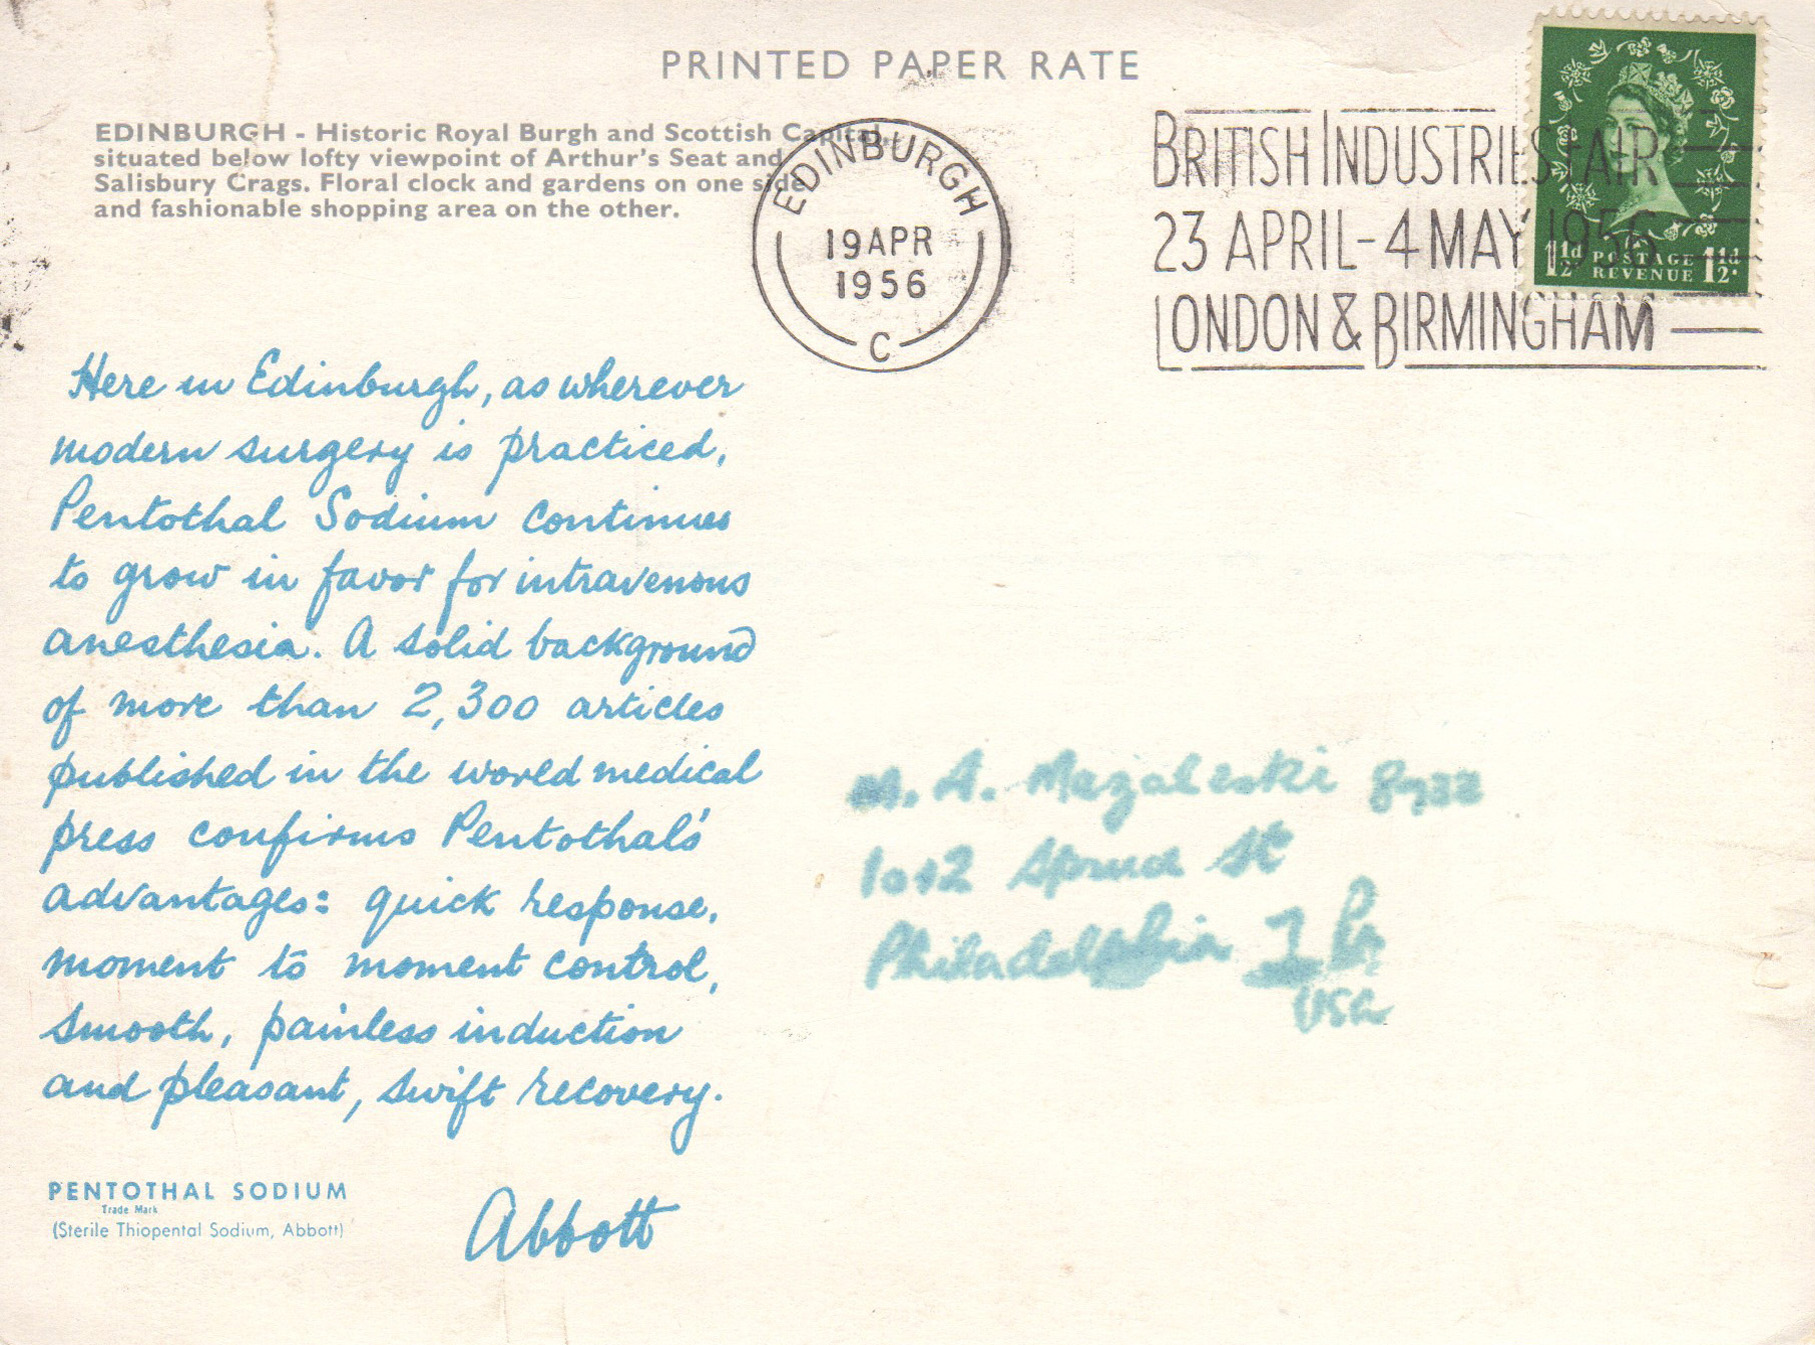 PRINTED PAPER RATE
EDINBURGH - Historic Royal Burgh and Scottish Capital,
situated below lofty viewpoint of Arthur's Seat and
Salisbury Crags. Floral clock and gardens on one side
and fashionable shopping area on the other.
EDINBURGH
19 APR
1956
C
BRITISH INDUSTRIES FAIR
23 APRIL - 4 MAY 1956
LONDON & BIRMINGHAM
1½d POSTAGE REVENUE 1½d.
Here in Edinburgh, as wherever
modern surgery is practiced,
Pentothal Sodium continues
to grow in favor for intravenous
anesthesia. A solid background
of more than 2,300 articles
published in the world medical
press confirms Pentothal's
advantages: quick response,
moment to moment control,
smooth, painless induction
and pleasant, swift recovery.
PENTOTHAL SODIUM
Trade Mark
(Sterile Thiopental Sodium, Abbott)
Abbott
M. A.
St
Philadelphia 7 Pa
USA